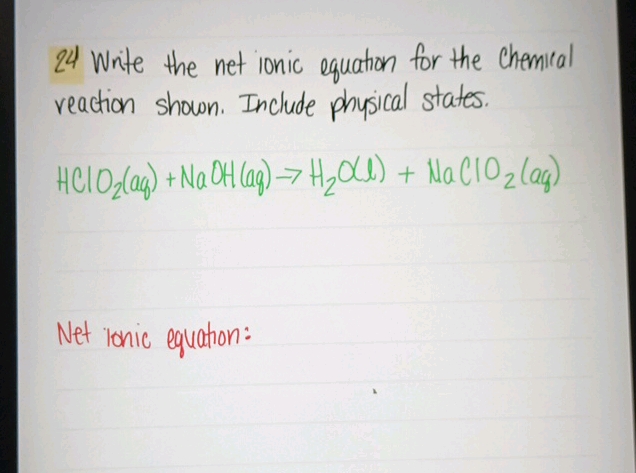 24 Write the net ionic equation for the Chemical
reaction shown. Include physical states.
HClO₂(aq) + NaOH(aq) → H₂O(l) + NaClO₂(aq)
Net ionic equation: